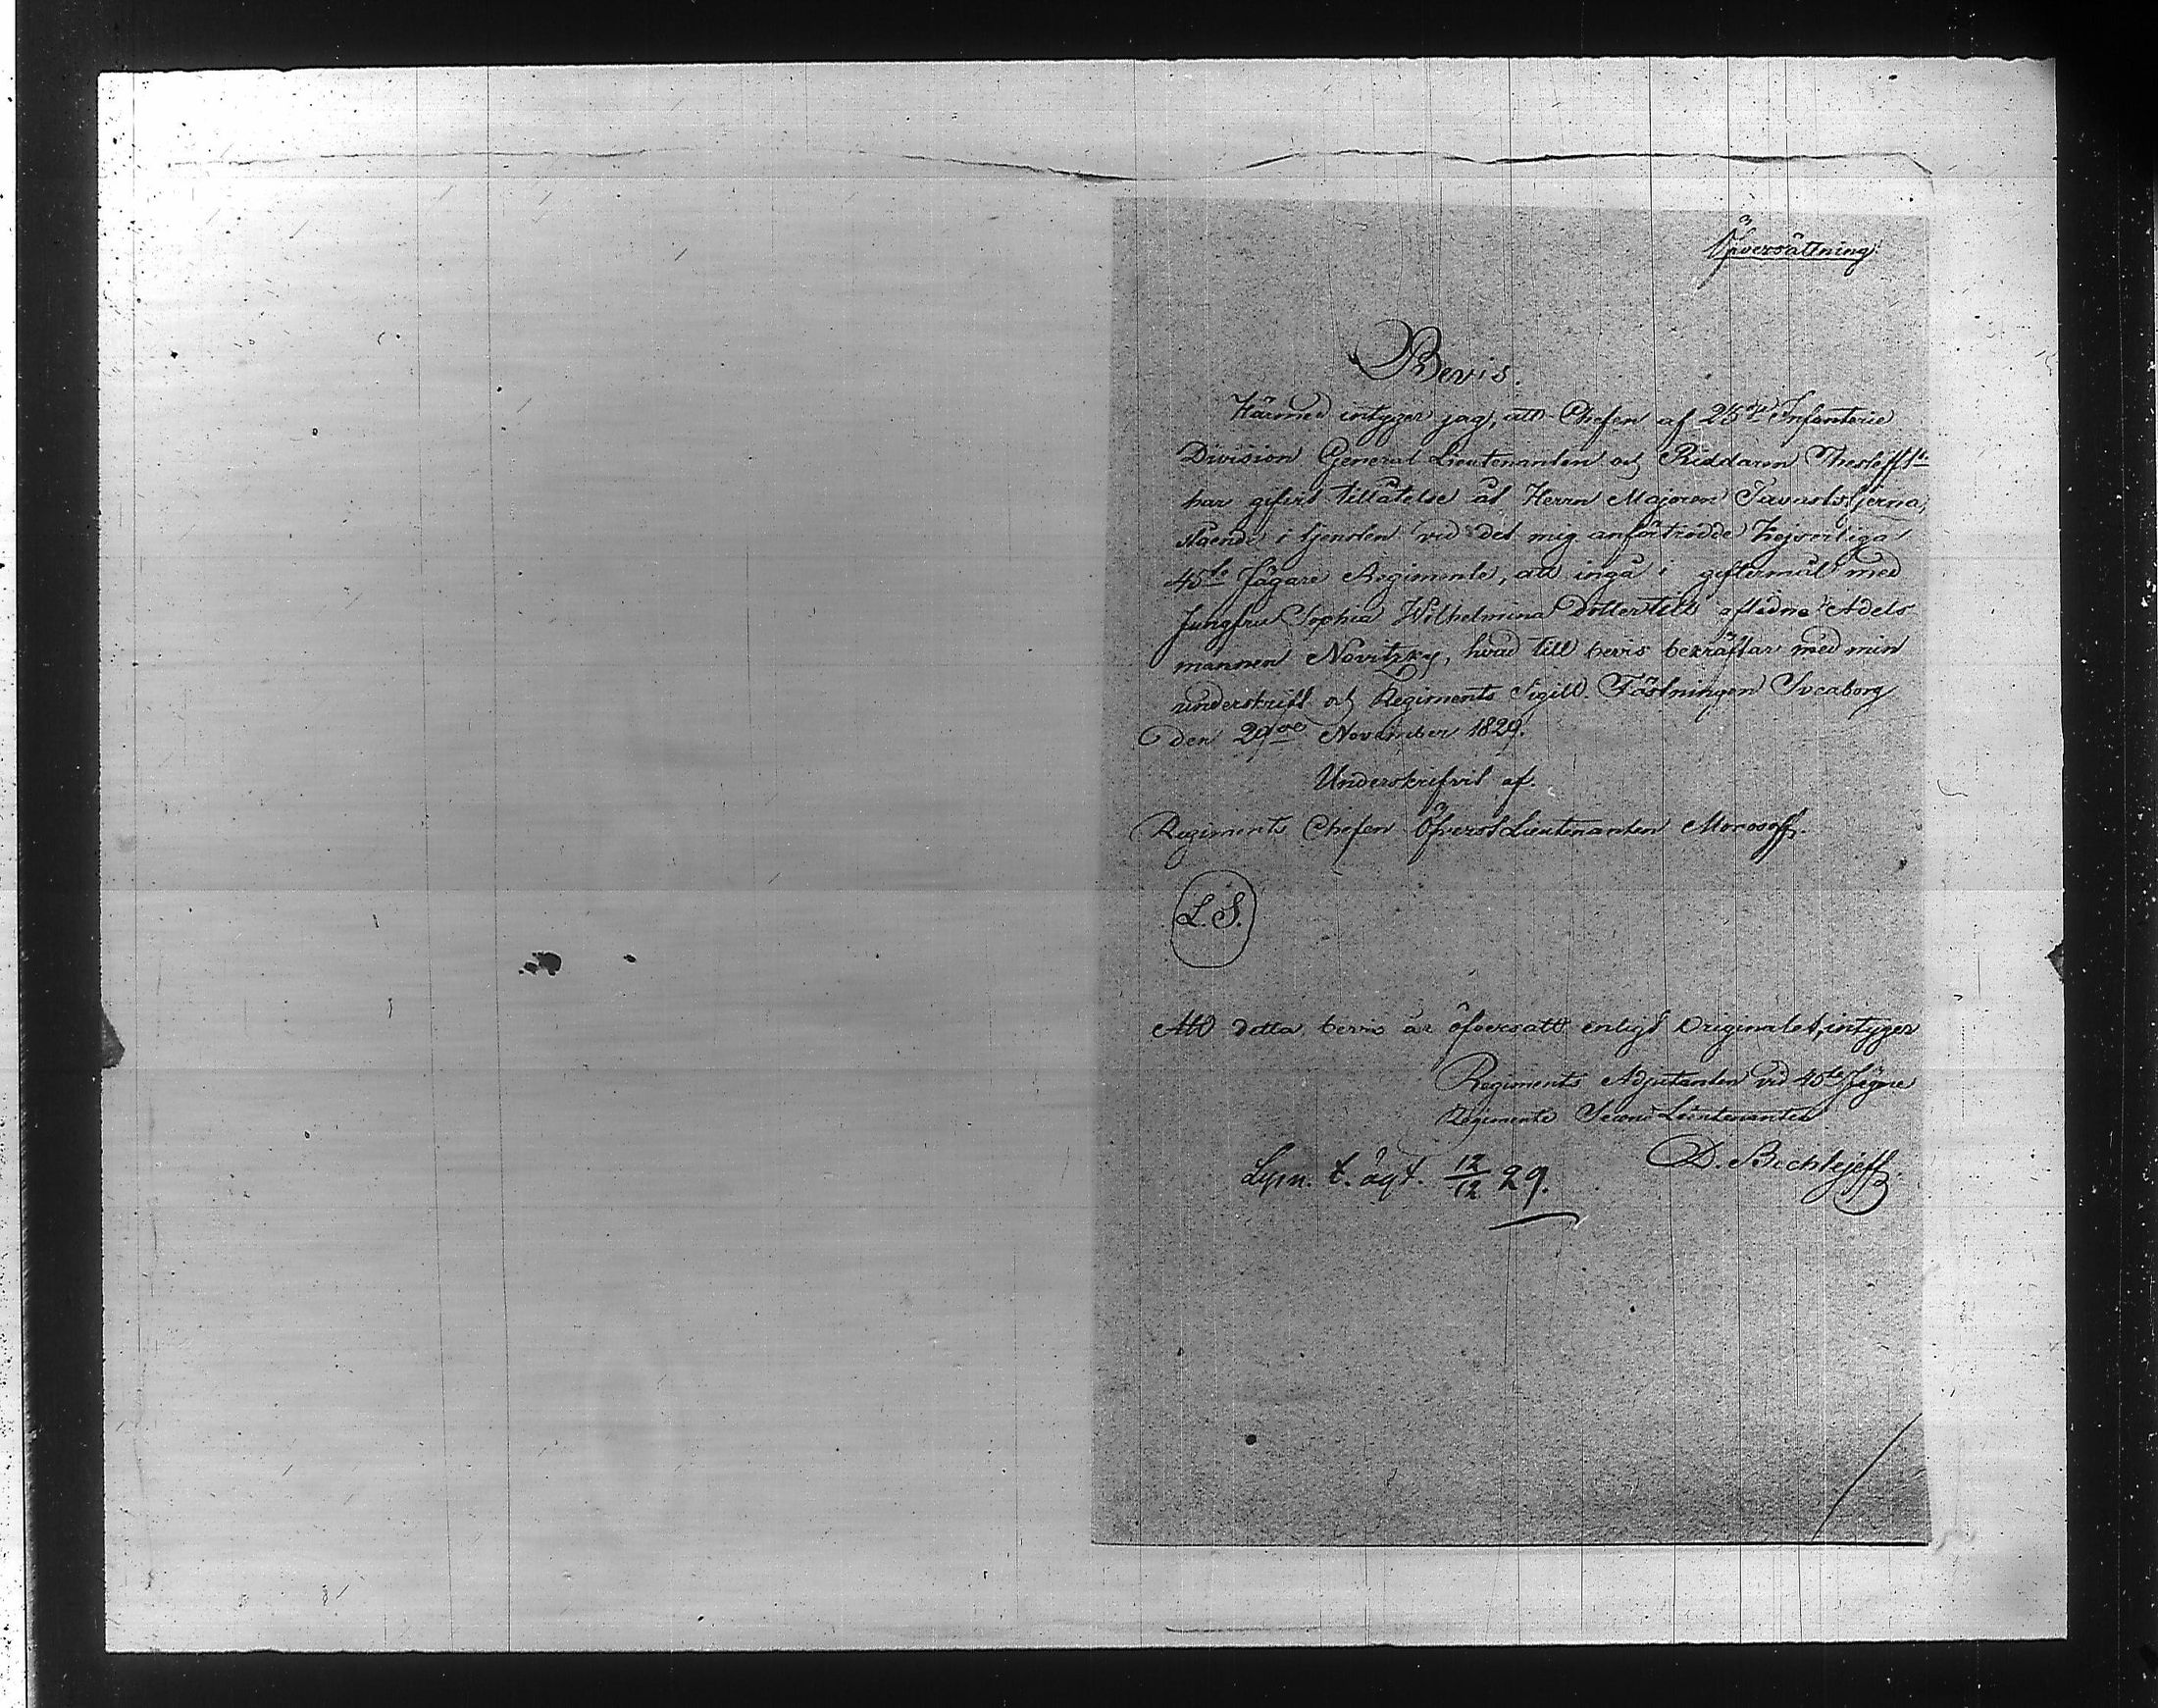 Öfversättning
Bevis.
Härmed intygar jag, att Chefen af 23dje Infanterie
Division General Lieutenanten och Riddaren Thesleff 1e
har gifvit tillåtelse åt Herrn Majoren Tavaststjerna,
stående i tjensten vid det mig anförtrodde Kejserliga
45te Jägare Regimente, att ingå i giftermål med
Jungfru Sophia Wilhelmina Dotter till aflidne Adels
mannen Novitzky, hvad till bevis bekräftar med min
underskrift och Regiments Sigill. Fästningen Sveaborg
den 29de November 1829.
Underskrifvit af.
Regiments Chefen Öfverst Lieutenanten Morosoff.
L. S.
Att detta bevis är öfversatt enligt Originalet, intygar
Regiments Adjutanten vid 45te Jägare
Regimente Second Lieutenanten
D. Bechlejeff
Lysn. t. ägt. 12/12 29.